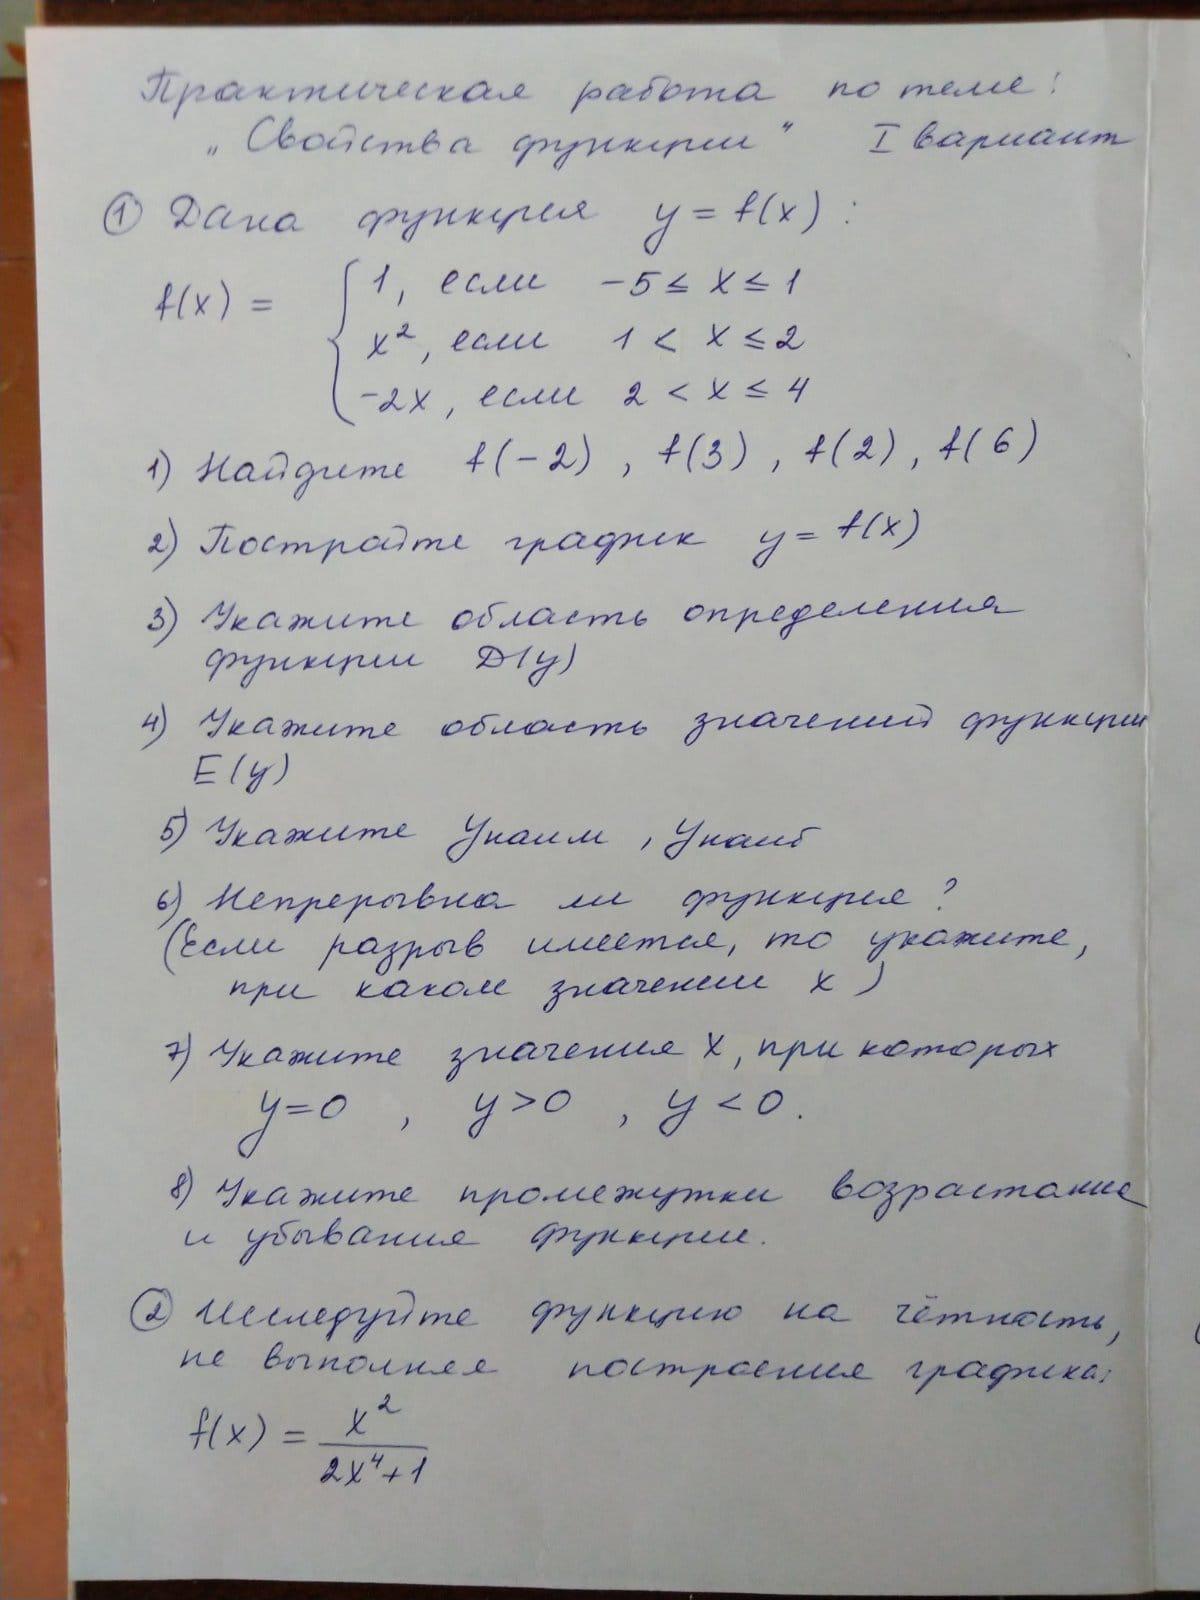 Практическая работа по теме:
„Свойства функции" I вариант
① Дана функция y = f(x) :
f(x) = { 1, если -5 ≤ x ≤ 1
x², если 1 < x ≤ 2
-2x, если 2 < x ≤ 4
1) Найдите f(-2) , f(3) , f(2) , f(6)
2) Постройте график y = f(x)
3) Укажите область определения
функции D(y)
4) Укажите область значений функции
E(y)
5) Укажите Унаим , Унаиб
6) Непрерывна ли функция ?
(Если разрыв имеется, то укажите,
при каком значении x )
7) Укажите значения x, при которых
y=0 , y>0 , y<0.
8) Укажите промежутки возрастание
и убывания функции.
② Исследуйте функцию на чётность,
не выполняя построения графика:
f(x) = x² / 2x⁴+1